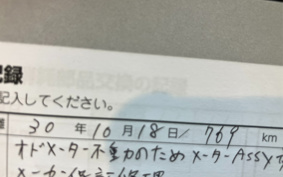 記録
記入してください。
30 年 10 月 18 日 / 769 km
オドメーター不動のため メーターASSY
メーカー保証修理